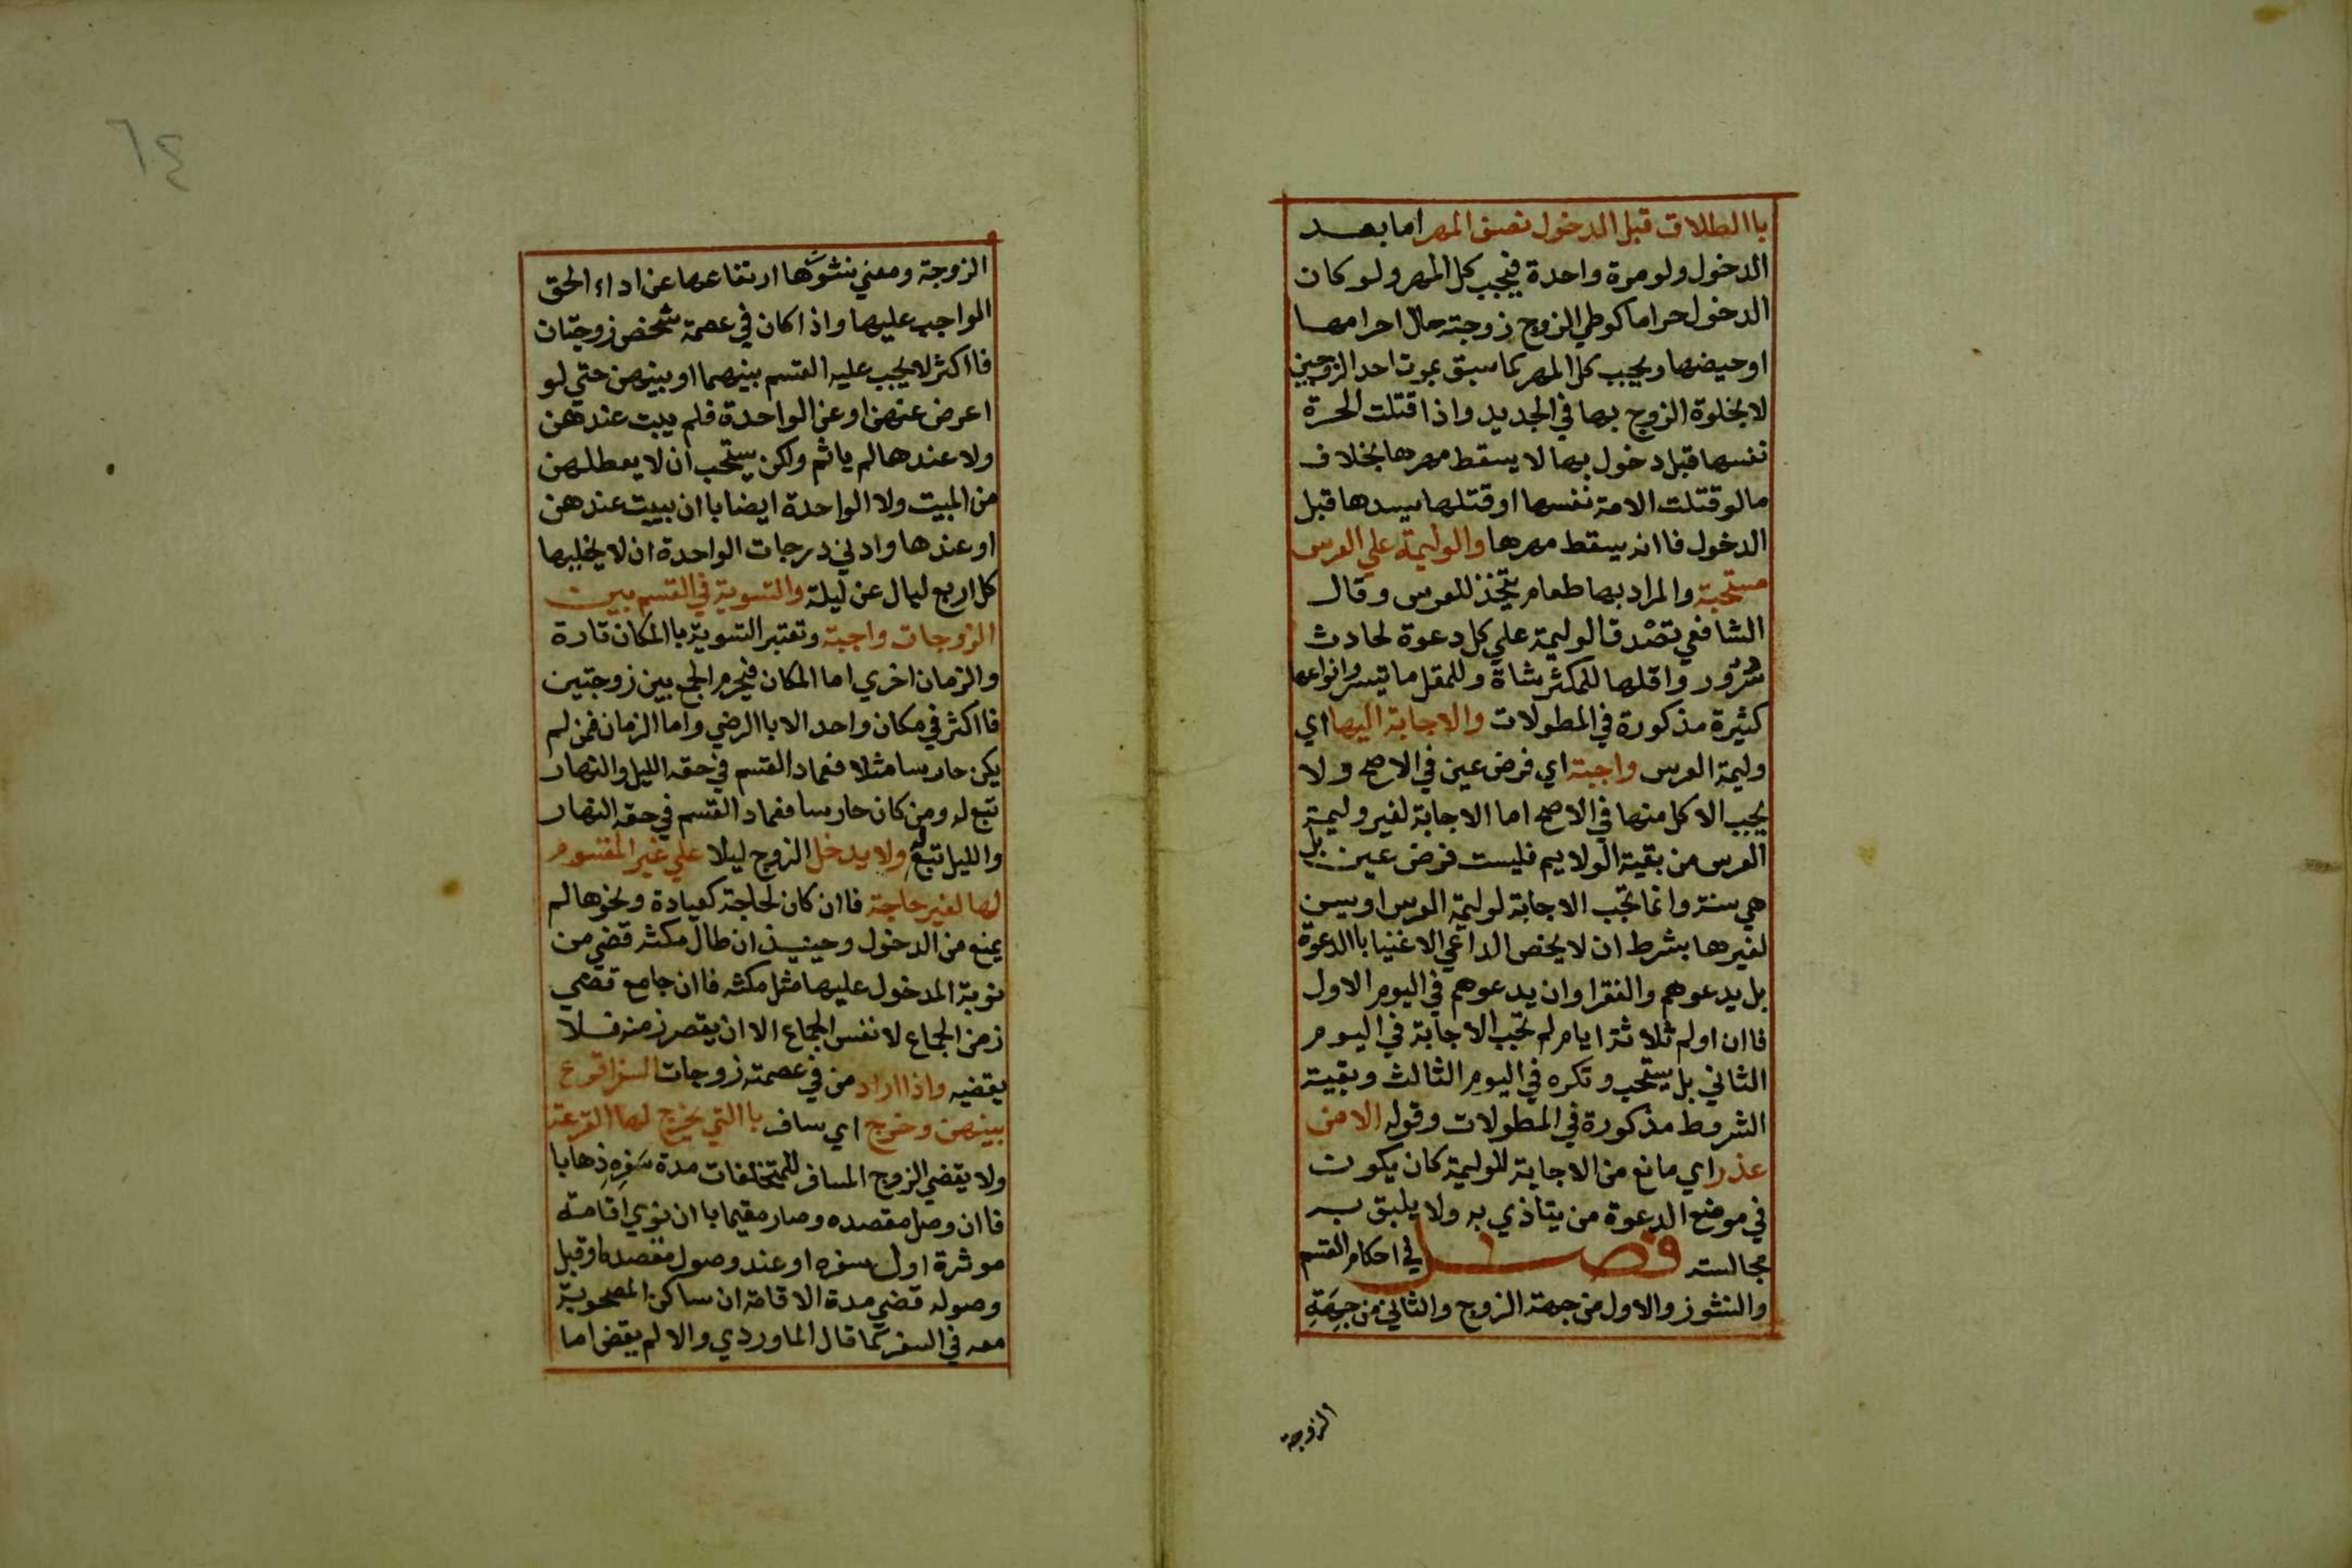 باالطلاق قبل الدخول نصف المهر اما بعد
الدخول ولو مرة واحدة فيجب كل المهر ولو كان
الدخول حراما كوطي الزوج زوجته حال احرامها
او حيضها ويجب كل المهر كما سبق بموت احد الزوجين
لا بخلوة الزوج بها في الجديد واذا قتلت الحرة
نفسها قبل دخول بها لا يسقط مهرها بخلاف
مالو قتلت الامة نفسها او قتلها سيدها قبل
الدخول فاانه يسقط مهرها والوليمة علي العرس
مستحبة والمراد بها طعام يتخذ للعرس وقال
الشافعي تصدق الوليمة علي كل دعوة لحادث
سرور واقلها للمكثر شاة وللمقل ما تيسر وانواعها
كثيرة مذكورة في المطولات والاجابة اليها اي
وليمة العرس واجبة اي فرض عين في الاصح ولا
يجب الاكل منها في الاصح اما الاجابة لغير وليمة
العرس من بقية الولايم فليست فرض عين بل
هي سنة وانما تجب الاجابة لوليمة العرس او يسن
لغيرها بشرط ان لا يخص الداعي الاغنيا باالدعوة
بل يدعوهم والفقرا وان يدعوهم في اليوم الاول
فاان اولم ثلاثة ايام لم تجب الاجابة في اليوم
الثاني بل يستحب وتكره في اليوم الثالث وبقية
الشروط مذكورة في المطولات وقوله الا من
عذر اي مانع من الاجابة للوليمة كان يكون
في موضع الدعوة من يتاذي به ولا يليق به
مجالسته فصل في احكام القسم
والنشوز والاول من جهة الزوج والثاني من جهة
الزوجة
٦٤
الزوجة ومعني نشوزها ارتفاعها عن اداء الحق
الواجب عليها واذا كان في عصمة شخص زوجتان
فااكثر لا يجب عليه القسم بينهما او بينهن حتي لو
اعرض عنهن او عن الواحدة فلم يبت عندهن
ولا عندها لم ياثم ولكن يستحب ان لا يعطلهن
من المبيت ولا الواحدة ايضا باان يبيت عندهن
او عندها وادني درجات الواحدة ان لا يخليها
كل اربع ليال عن ليلة والتسوية في القسم بين
الزوجات واجبة وتعتبر التسوية باالمكان تارة
والزمان اخري اما المكان فيحرم الجمع بين زوجتين
فااكثر في مكان واحد الا باالرضي واما الزمان فمن لم
يكن حارسا مثلا فعماد القسم في حقه الليل والنهار
تبع له ومن كان حارسا فعماد القسم في حقه النهار
والليل تبع له ولا يدخل الزوج ليلا علي غير المقسوم
لها لغير حاجة فاان كان لحاجة كعيادة ونحوها لم
يمنع من الدخول وحينيذ ان طال مكثه قضي من
نوبة المدخول عليها مثل مكثه فاان جامع قضي
زمن الجماع لا نفس الجماع الا ان يقصر زمنه فلا
يقضيه واذا اراد من في عصمته زوجات السفر اقرع
بينهن وخرج اي سافر باالتي يخرج لها القرعة
ولا يقضي الزوج المسافر للمتخلفات مدة سفره ذهابا
فاان وصل مقصده وصار مقيما باان نوي اقامة
موثرة اول سفره او عند وصول مقصده او قبل
وصوله قضي مدة الاقامة ان ساكن المصحوبة
معه في السفر كما قال الماوردي والا لم يقض اما